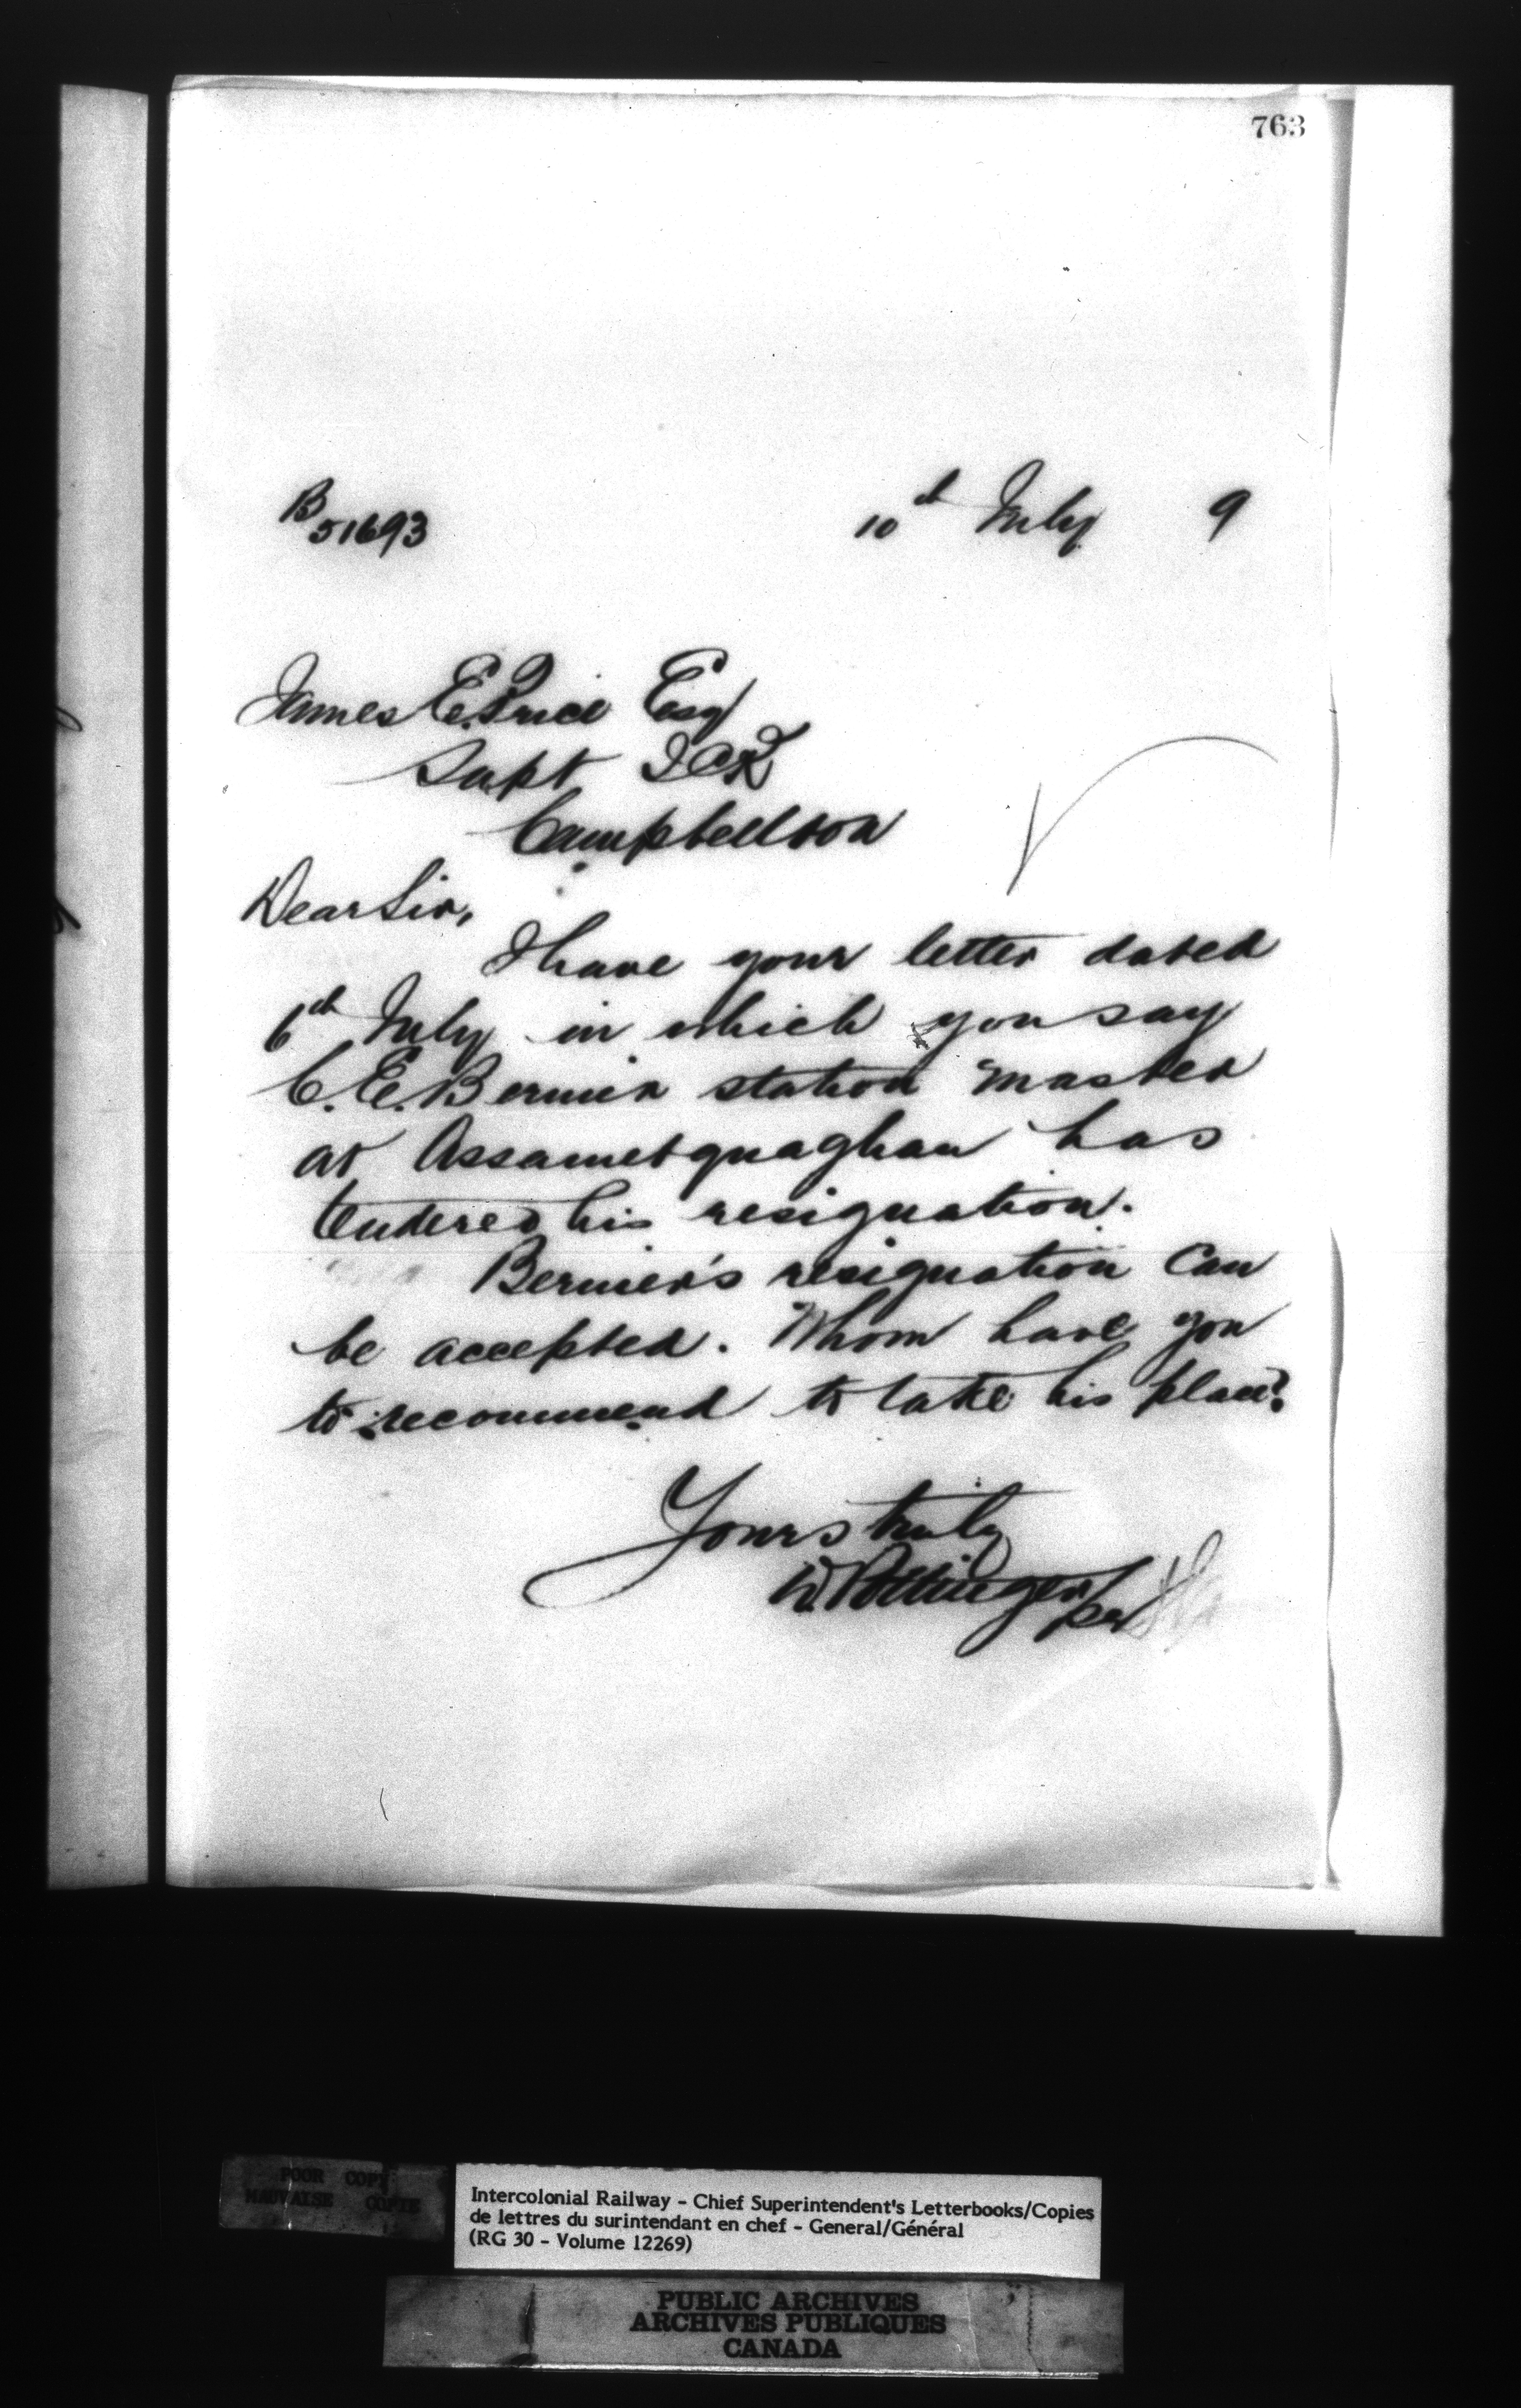 763
B 51693
10th July 9
James E. Price Esq
Supt I C R
Campbellton
Dear Sir,
I have your letter dated
6th July in which you say
C. E. Bernier station master
at Assametquaghan has
tendered his resignation.
Bernier's resignation can
be accepted. Whom have you
to recommend to take his place?
Yours truly
D. Pottinger
per
POOR COPY
MAUVAISE COPIE
Intercolonial Railway - Chief Superintendent's Letterbooks/Copies
de lettres du surintendant en chef - General/Général
(RG 30 - Volume 12269)
PUBLIC ARCHIVES
ARCHIVES PUBLIQUES
CANADA